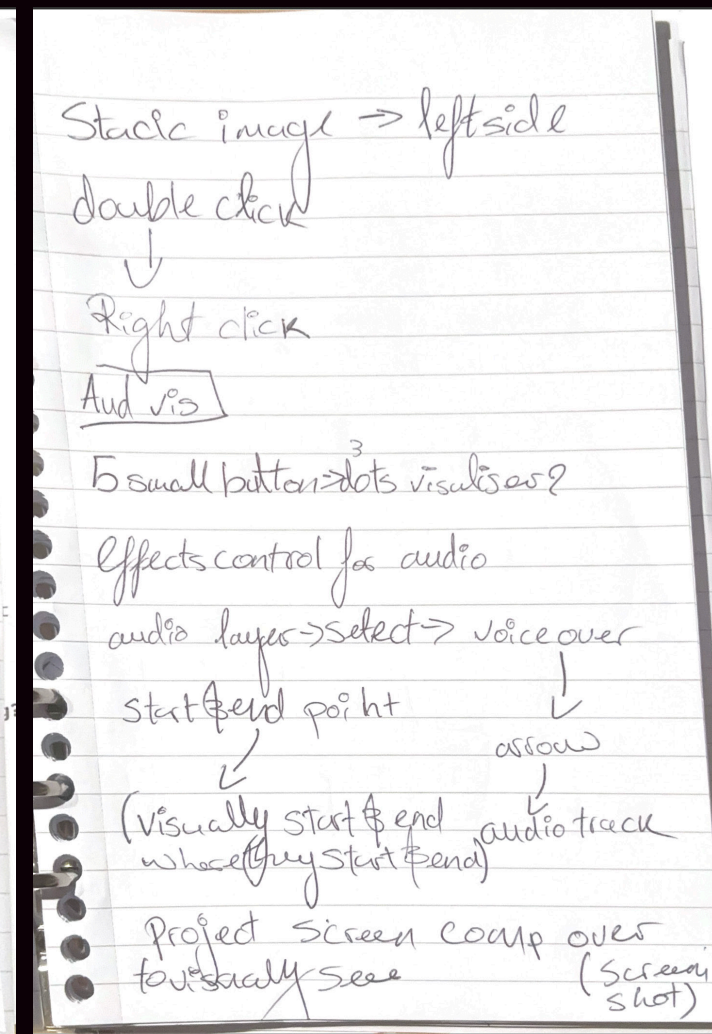 Stacic image → leftside
double click
↓
Right click
Aud vis
5 small button → 3 dots visuliser?
effects control for audio
audio layer → select → voice over
start & end point
arrow
(visually start & end
where they start & end)
audio track
Project screen comp over
to visually see
(screen
shot)